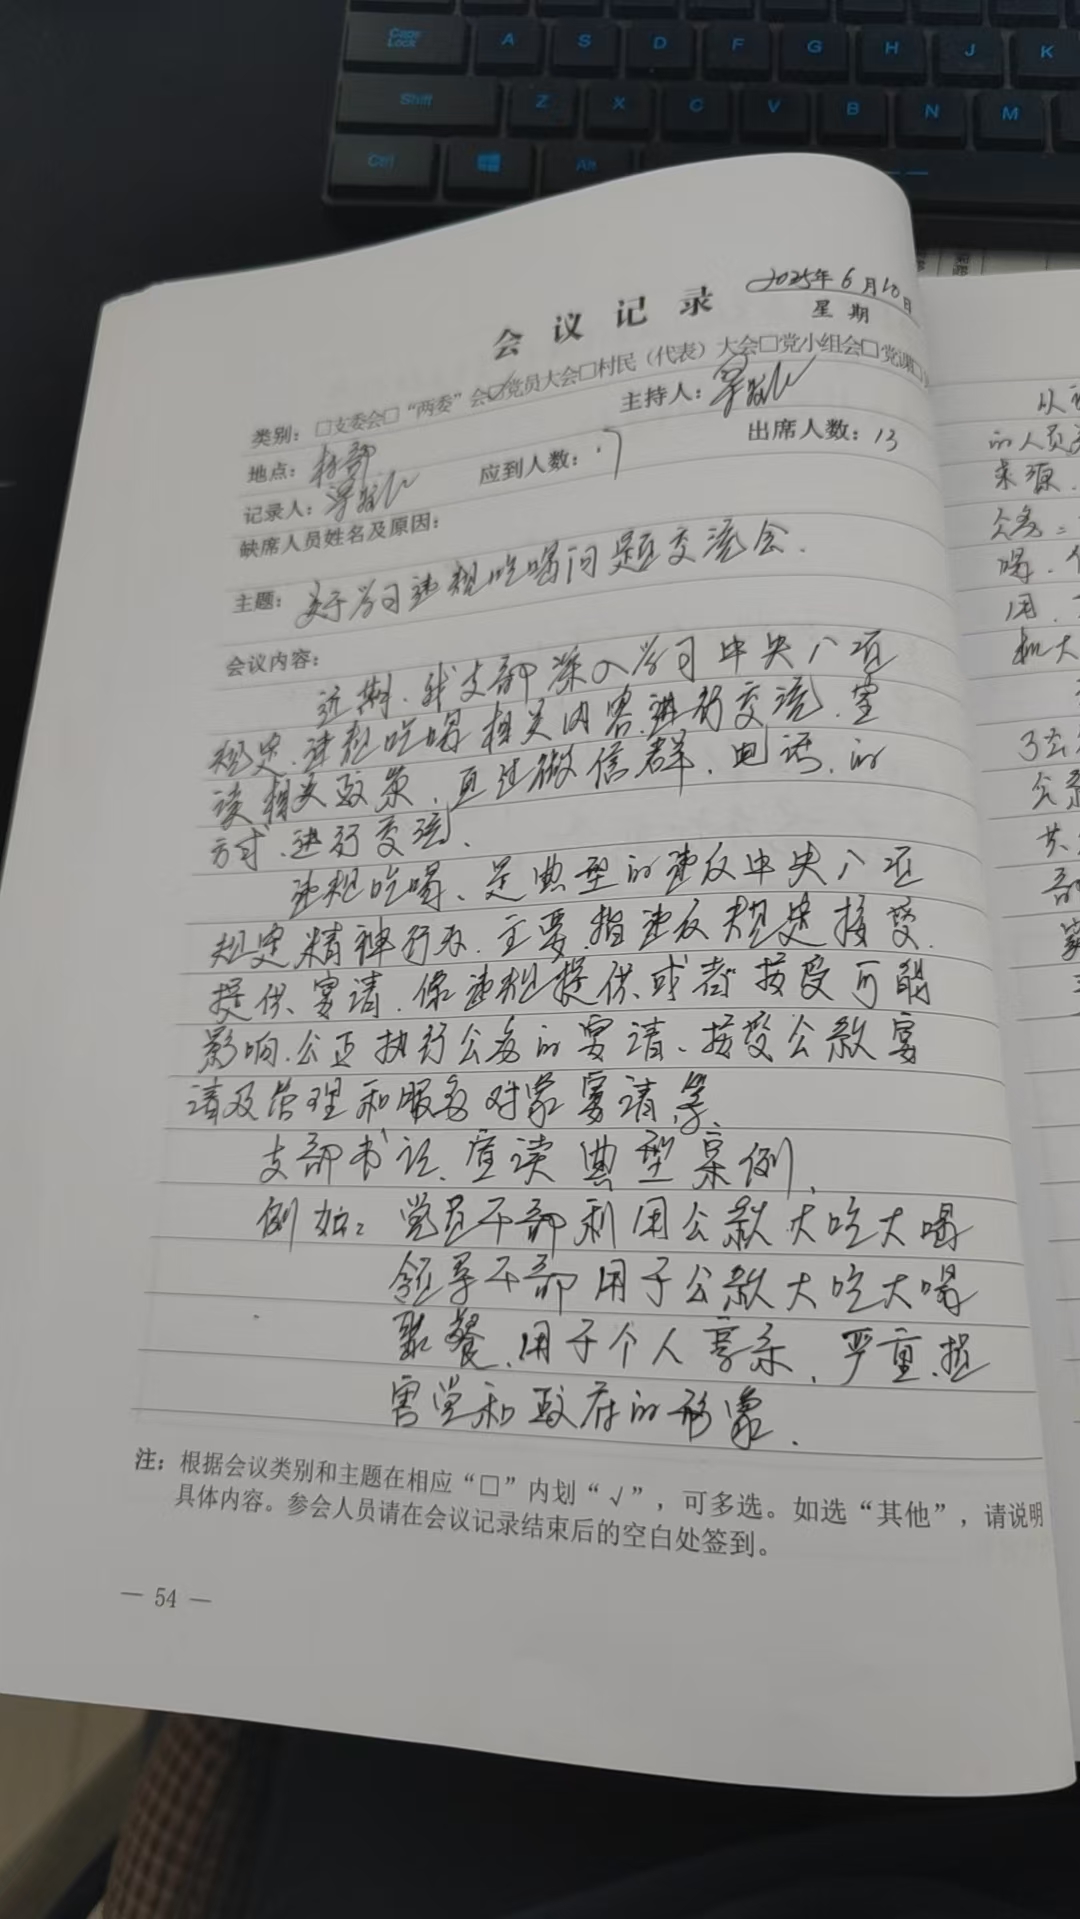 Caps Lock A S D F G H J K
Shift Z X C V B N M
Ctrl Alt
2025年6月10日
会议记录
星期
类别：□支委会□“两委”会☑党员大会□村民（代表）大会□党小组会□党课□
地点：村部
主持人：
记录人：
应到人数：17
出席人数：13
缺席人员姓名及原因：
主题：关于学习违规吃喝问题交流会.
会议内容：
近期.我支部深入学习中央八项
规定.违规吃喝相关内容.进行交流.宣
读相关政策，通过微信群、电话、的
方式、进行交流、
违规吃喝、是典型的违反中央八项
规定精神行为.主要.指违反规定接受.
提供.宴请.像违规提供.或者接受可能
影响.公正执行公务的宴请、接受公款宴
请及管理和服务对象宴请.等、
支部书记、宣读典型案例、
例如：党员干部利用公款大吃大喝
领导干部用于公款大吃大喝
聚餐.用于个人享乐，严重.损
害党和政府的形象.
注：根据会议类别和主题在相应“□”内划“√”，可多选。如选“其他”，请说明
具体内容。参会人员请在会议记录结束后的空白处签到。
— 54 —
的人员
来源.
公务
喝.
用.
机大
公款
共
部